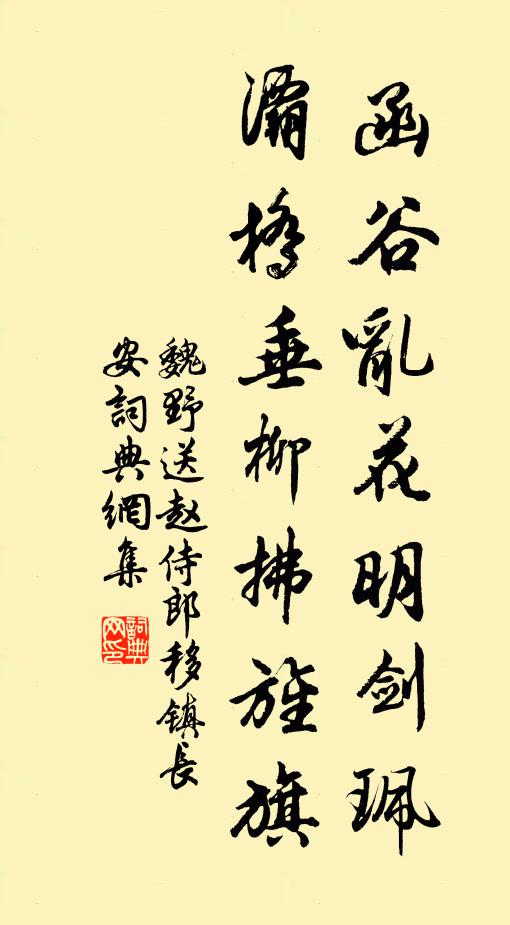 函谷亂花明剑珮
灞橋垂柳拂旌旗
魏野送赵侍郎移镇長
安詞典網集
詞典
网印